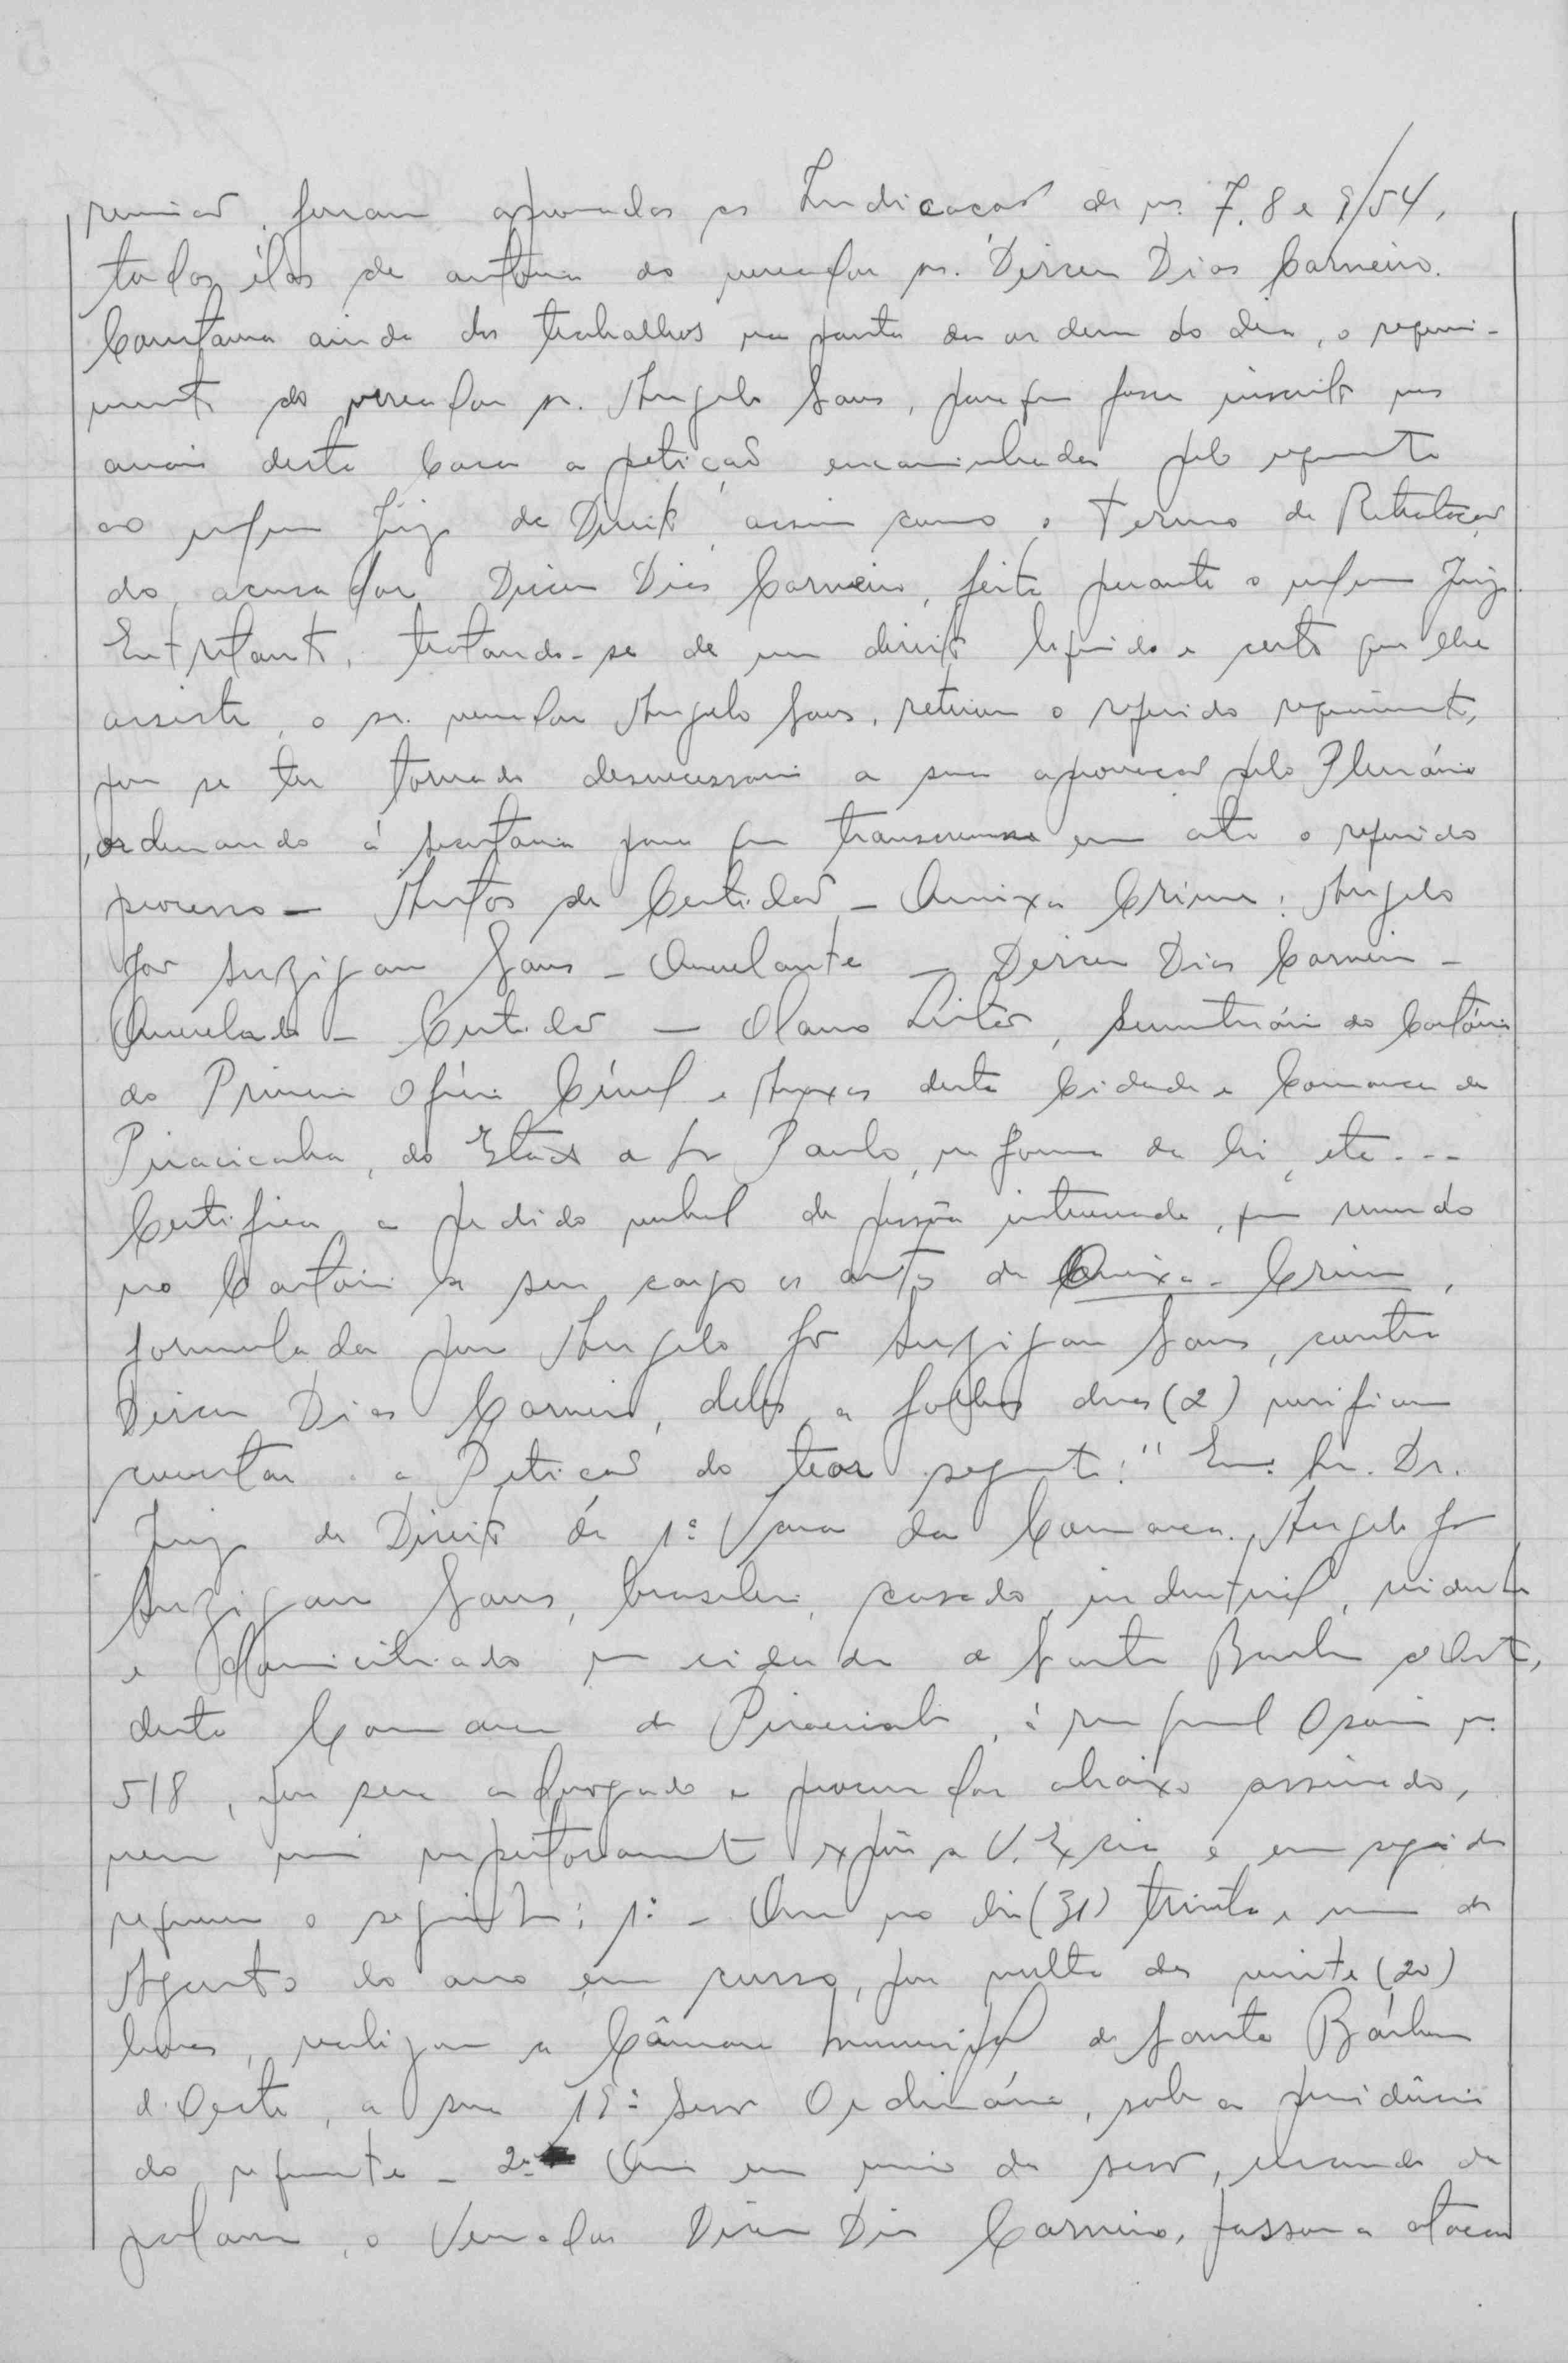 reunião foram aprovadas as Indicações de ns. 7, 8 e 9/54,
todas élas de autoria do vereador sr. Dirceu Dias Carneiro.
Constava ainda dos trabalhos na pauta da ordem do dia, o requeri-
mento do vereador sr. Angelo Sans, para que fosse inscrito nos
anais desta Casa a petição encaminhada pelo requerente
ao Juiz de Direito, assim como o Termo de Retratação
do acusador Dirceu Dias Carneiro, feita perante o Juiz.
Entretanto, tratando-se de um direito liquido e certo que lhe
assiste, o sr. vereador Angelo Sans, retirou o referido requerimento,
por se ter tornado desnecessario a sua aprovação pelo Plenário
ordenando á secretaria para que transcrevesse em ata o referido
processo — Autos de Certidão — Queixa Crime: Angelo
José Suzigan Sans — Querelante — Dirceu Dias Carneiro —
Querelado — Certidão — Olavo, Serventuário do Cartório
do Primeiro Oficio Civel e Anexos desta Cidade e Comarca de
Piracicaba, do Estado de São Paulo, na forma da lei, etc...
Certifica a pedido verbal de pessôa interessada, que revendo
no Cartorio a seu cargo os autos de Queixa-Crime,
formulada por Angelo José Suzigan Sans, contra
Dirceu Dias Carneiro, deles, a folhas duas (2) verificou
constar a Petição do teor seguinte: "Exmo. Sr. Dr.
Juiz de Direito da 1ª Vara da Comarca. Angelo José
Suzigan Sans, brasileiro, casado, industrial, residente
e domiciliado na cidade de Santa Barbara d'Oeste,
desta Comarca de Piracicaba, á rua General Osorio nº
518, por seu advogado e procurador abaixo assinado,
vem mui respeitosamente expôr a V. Excia e em seguida
requerer o seguinte: 1º — Que no dia (31) trinta e um de
Agosto do ano em curso, por volta das vinte (20)
horas, realizou a Câmara Municipal de Santa Bárbara
d'Oeste, a sua Sessão Ordinária, sob a presidência
do requerente — 2º Que em meio da sessão, usando da
palavra, o Vereador Dirceu Dias Carneiro, passou a atacar